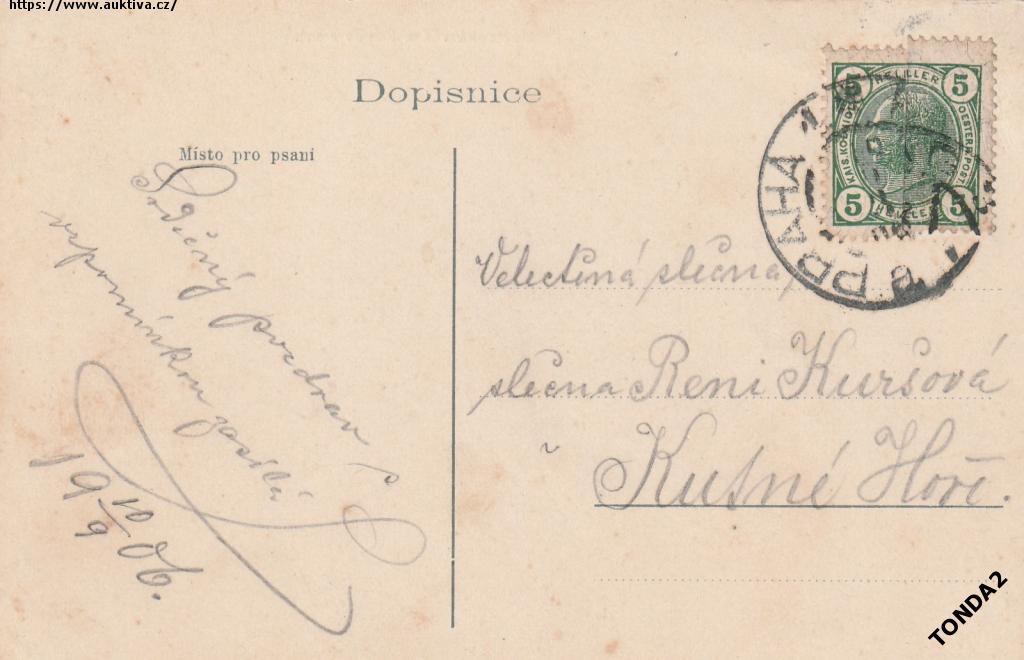 https://www.auktiva.cz/
Dopisnice
Místo pro psaní
Srdečný pozdrav s
vzpomínkou zasílá
19 10/9 06.
5 HELLER 5
KAIS. KÖNIGL. OESTERR. POST
5 HELLER 5
PRAHA
Velectěná slečna
slečna Reni Kuršová
v
Kutné Hoře.
TONDA2